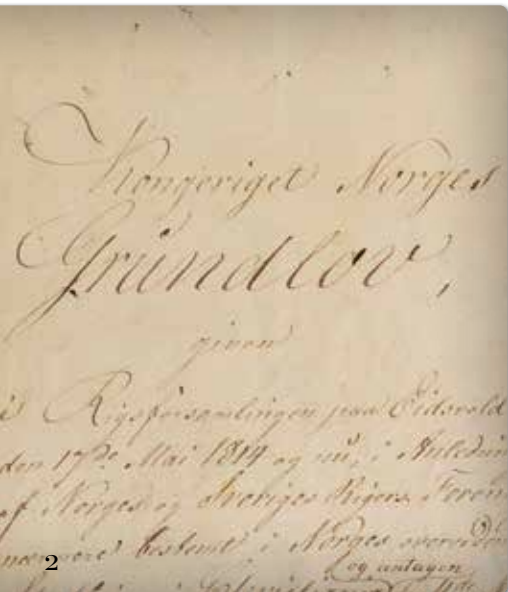 Kongeriget Norges
Grundlov,
given
i Rigsforsamlingen paa Eidsvold
den 17de Mai 1814 og nu, i Anledning
af Norges og Sveriges Rigers Foren
nærmere bestemt i Norges overorden
og antagen
2